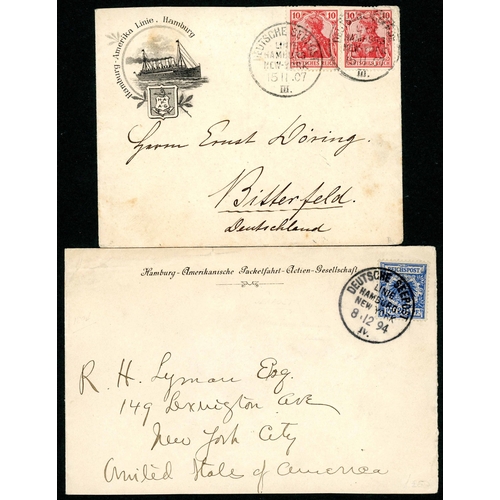 Hamburg-Amerika Linie, Hamburg
10 10
DEUTSCHE SEEPOST
LINIE
HAMBURG
NEW-YORK
15 11 07
III.
Herrn Ernst Döring.
Bitterfeld.
Deutschland
Hamburg-Amerikanische Packetfahrt-Actien-Gesellschaft
REICHSPOST
DEUTSCHE SEEPOST
LINIE
HAMBURG
NEW YORK
8 12 94
IV.
R. H. Lyman Esq.
149 Lexington Ave
New York City
United States of America